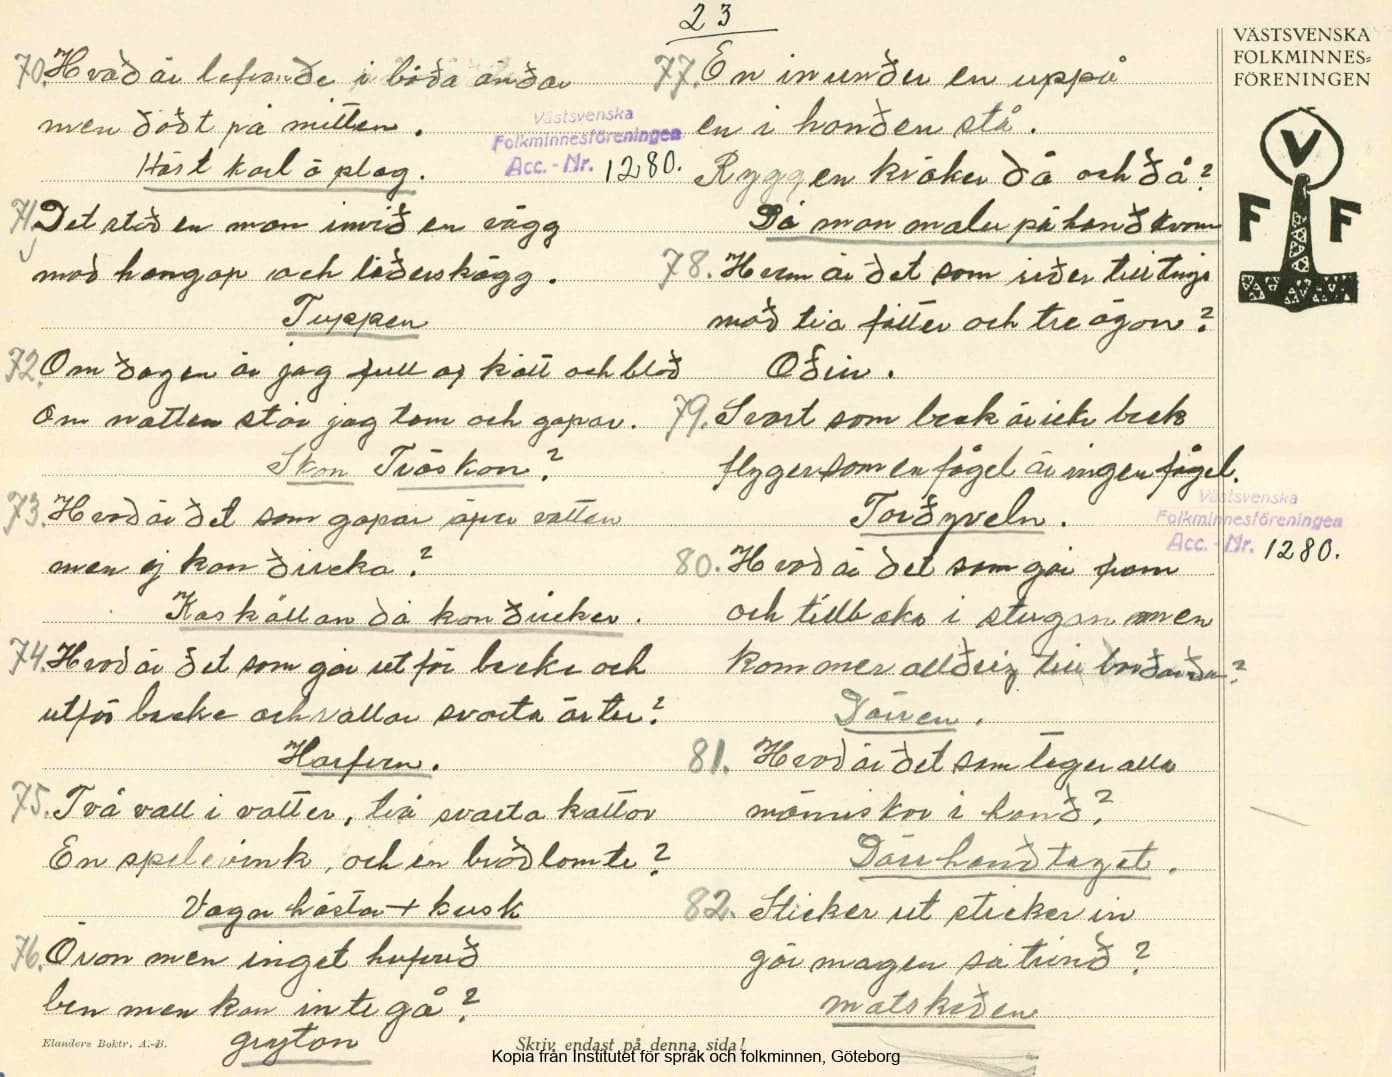 23
VÄSTSVENSKA
FOLKMINNES=
FÖRENINGEN
V
F F
70. Hvad är lefvande i båda ändar
men dödt på mitten.
Häst karl å plog.
Västsvenska
Folkminnesföreningen
Acc.-Nr. 1280.
71 Det stod en man invid en vägg
mod hangap och läderskägg.
Tuppen
72. Om dagen är jag full af kött och blod
Om natten står jag tom och gapar.
Skon Träskon?
73. Hvad är det som gapar åfver vatten
men ej kan dricka?
Kaskällan då kon dricker.
74. Hvad är det som går ut för backe och
utför backe och vallar svarta ärter?
Harfven.
75. Två vall i vatter, två svarta kattor
En spelevink, och en brödlomte?
Vagn hästar + kusk
76. Öron men inget hufvud
ben men kan inte gå?
grytan
77. En inunder en uppå
en i handen stå.
Ryggen kröker då och då?
Då man maler på handkvarn
78. Hvem är det som rider till tings
mod tio fötter och tre ögon?
Odin.
79. Svart som beck är ick beck
flyger som en fågel är ingen fågel.
Tordyveln.
Västsvenska
Folkminnesföreningen
Acc.-Nr. 1280.
80. Hvad är det som går fram
och tillbaka i stugan men
kommer alldrig till
Dörren.
81. Hvad är det som tager alla
människor i hand?
Dörrhandtaget.
82. Sticker ut sticker in
gör magen så trind?
matskeden
Elanders Boktr. A.-B.
Skriv endast på denna sida!
Kopia från Institutet för språk och folkminnen, Göteborg